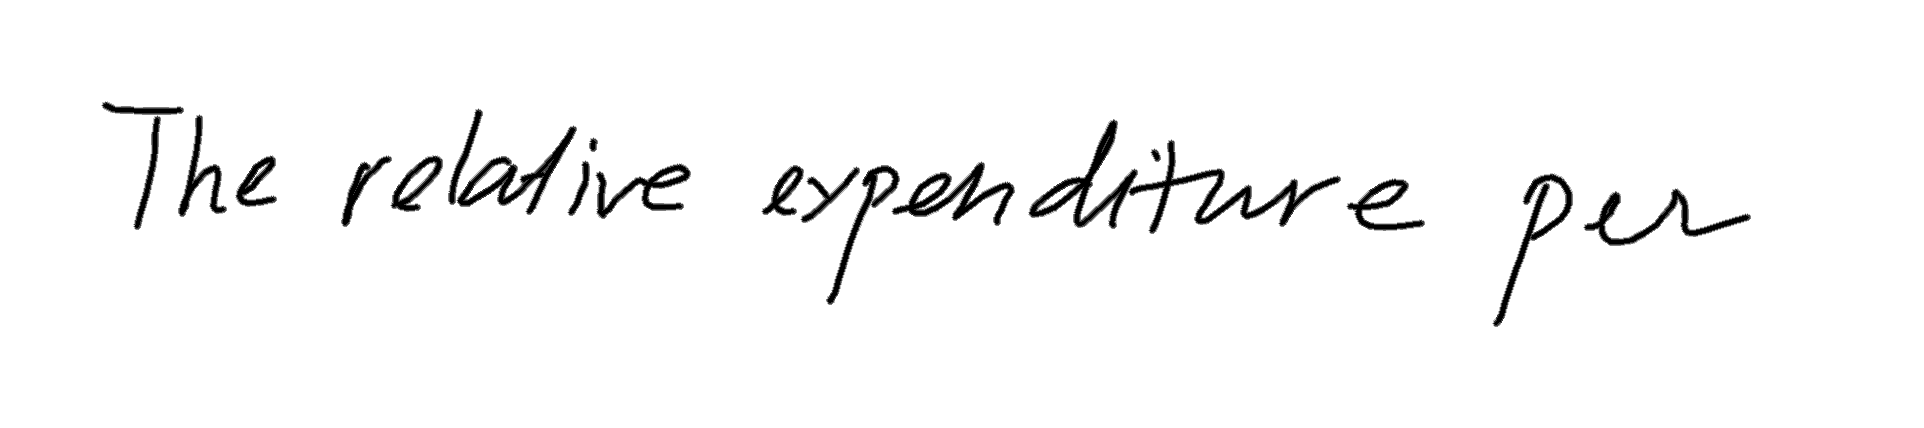 The relative expenditure per